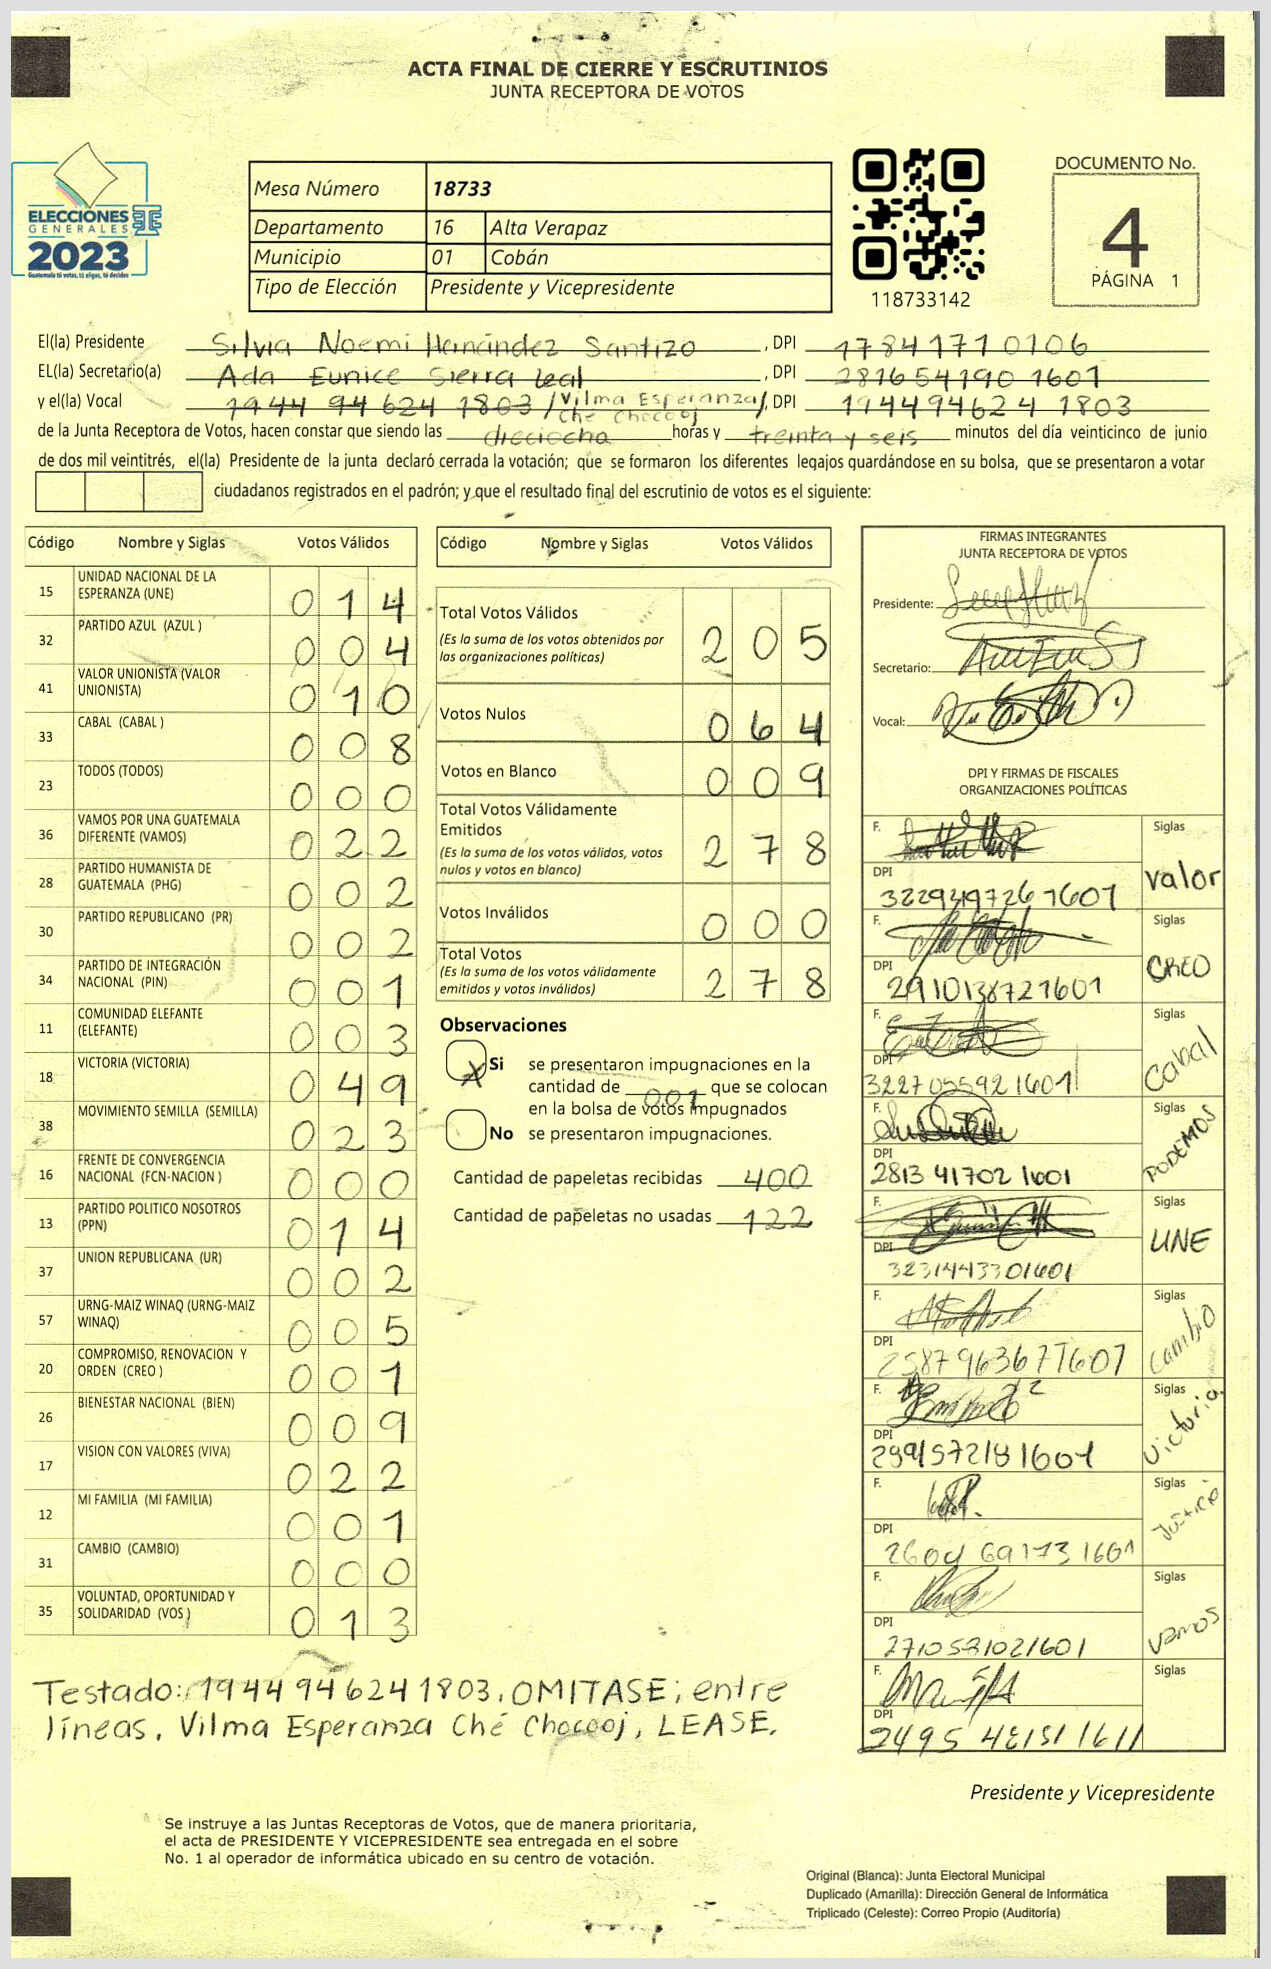 ACTA FINAL DE CIERRE Y ESCRUTINIOS
JUNTA RECEPTORA DE VOTOS
ELECCIONES
GENERALES
2023
Guatemala tú votas, tú eliges, tú decides
Mesa Número 18733
Departamento 16 Alta Verapaz
Municipio 01 Cobán
Tipo de Elección Presidente y Vicepresidente
118733142
DOCUMENTO No.
4
PÁGINA 1
El(la) Presidente Silvia Noemi Hernández Santizo, DPI 1784171010106
EL(la) Secretario(a) Ada Eunice Sierra Leal, DPI 2816541901601
y el(la) Vocal 1944 94 624 1803 /Vilma Esperanza/, DPI 194494624 1803
Ché Chocooj
de la Junta Receptora de Votos, hacen constar que siendo las dieciocho horas y treinta y seis minutos del día veinticinco de junio
de dos mil veintitrés, el(la) Presidente de la junta declaró cerrada la votación; que se formaron los diferentes legajos guardándose en su bolsa, que se presentaron a votar
ciudadanos registrados en el padrón; y que el resultado final del escrutinio de votos es el siguiente:
Código Nombre y Siglas Votos Válidos
15 UNIDAD NACIONAL DE LA ESPERANZA (UNE) 0 1 4
32 PARTIDO AZUL (AZUL ) 0 0 4
41 VALOR UNIONISTA (VALOR UNIONISTA) 0 1 0
33 CABAL (CABAL ) 0 0 8
23 TODOS (TODOS) 0 0 0
36 VAMOS POR UNA GUATEMALA DIFERENTE (VAMOS) 0 2 2
28 PARTIDO HUMANISTA DE GUATEMALA (PHG) 0 0 2
30 PARTIDO REPUBLICANO (PR) 0 0 2
34 PARTIDO DE INTEGRACIÓN NACIONAL (PIN) 0 0 1
11 COMUNIDAD ELEFANTE (ELEFANTE) 0 0 3
18 VICTORIA (VICTORIA) 0 4 9
38 MOVIMIENTO SEMILLA (SEMILLA) 0 2 3
16 FRENTE DE CONVERGENCIA NACIONAL (FCN-NACION ) 0 0 0
13 PARTIDO POLITICO NOSOTROS (PPN) 0 1 4
37 UNION REPUBLICANA (UR) 0 0 2
57 URNG-MAIZ WINAQ (URNG-MAIZ WINAQ) 0 0 5
20 COMPROMISO, RENOVACION Y ORDEN (CREO ) 0 0 1
26 BIENESTAR NACIONAL (BIEN) 0 0 9
17 VISION CON VALORES (VIVA) 0 2 2
12 MI FAMILIA (MI FAMILIA) 0 0 1
31 CAMBIO (CAMBIO) 0 0 0
35 VOLUNTAD, OPORTUNIDAD Y SOLIDARIDAD (VOS ) 0 1 3
Código Nombre y Siglas Votos Válidos
Total Votos Válidos 2 0 5
(Es la suma de los votos obtenidos por
las organizaciones políticas)
Votos Nulos 0 6 4
Votos en Blanco 0 0 9
Total Votos Válidamente
Emitidos 2 7 8
(Es la suma de los votos válidos, votos
nulos y votos en blanco)
Votos Inválidos 0 0 0
Total Votos 2 7 8
(Es la suma de los votos válidamente
emitidos y votos inválidos)
Observaciones
X Si se presentaron impugnaciones en la
cantidad de 001 que se colocan
en la bolsa de votos impugnados
No se presentaron impugnaciones.
Cantidad de papeletas recibidas 400
Cantidad de papeletas no usadas 122
FIRMAS INTEGRANTES
JUNTA RECEPTORA DE VOTOS
Presidente:
Secretario:
Vocal:
DPI Y FIRMAS DE FISCALES
ORGANIZACIONES POLÍTICAS
F. Siglas
DPI valor
F. Siglas
DPI 2910138721601 CREO
F. Siglas
DPI 3227055921601 Cabal
F. Siglas
DPI 2813 41702 1601 PODEMOS
F. Siglas
DPI 3231443301601 UNE
F. Siglas
DPI 2587963677607 Cambio
F. Siglas
DPI 2991572181601 Victoria
F. Siglas
DPI 2604 69173 1601 Justicia
F. Siglas
DPI 2710581021601 vamos
F. Siglas
DPI
Testado: 1944 94624 1803, OMITASE; entre
líneas, Vilma Esperanza Ché Chocooj, LEASE.
Presidente y Vicepresidente
Se instruye a las Juntas Receptoras de Votos, que de manera prioritaria,
el acta de PRESIDENTE Y VICEPRESIDENTE sea entregada en el sobre
No. 1 al operador de informática ubicado en su centro de votación.
Original (Blanca): Junta Electoral Municipal
Duplicado (Amarilla): Dirección General de Informática
Triplicado (Celeste): Correo Propio (Auditoría)